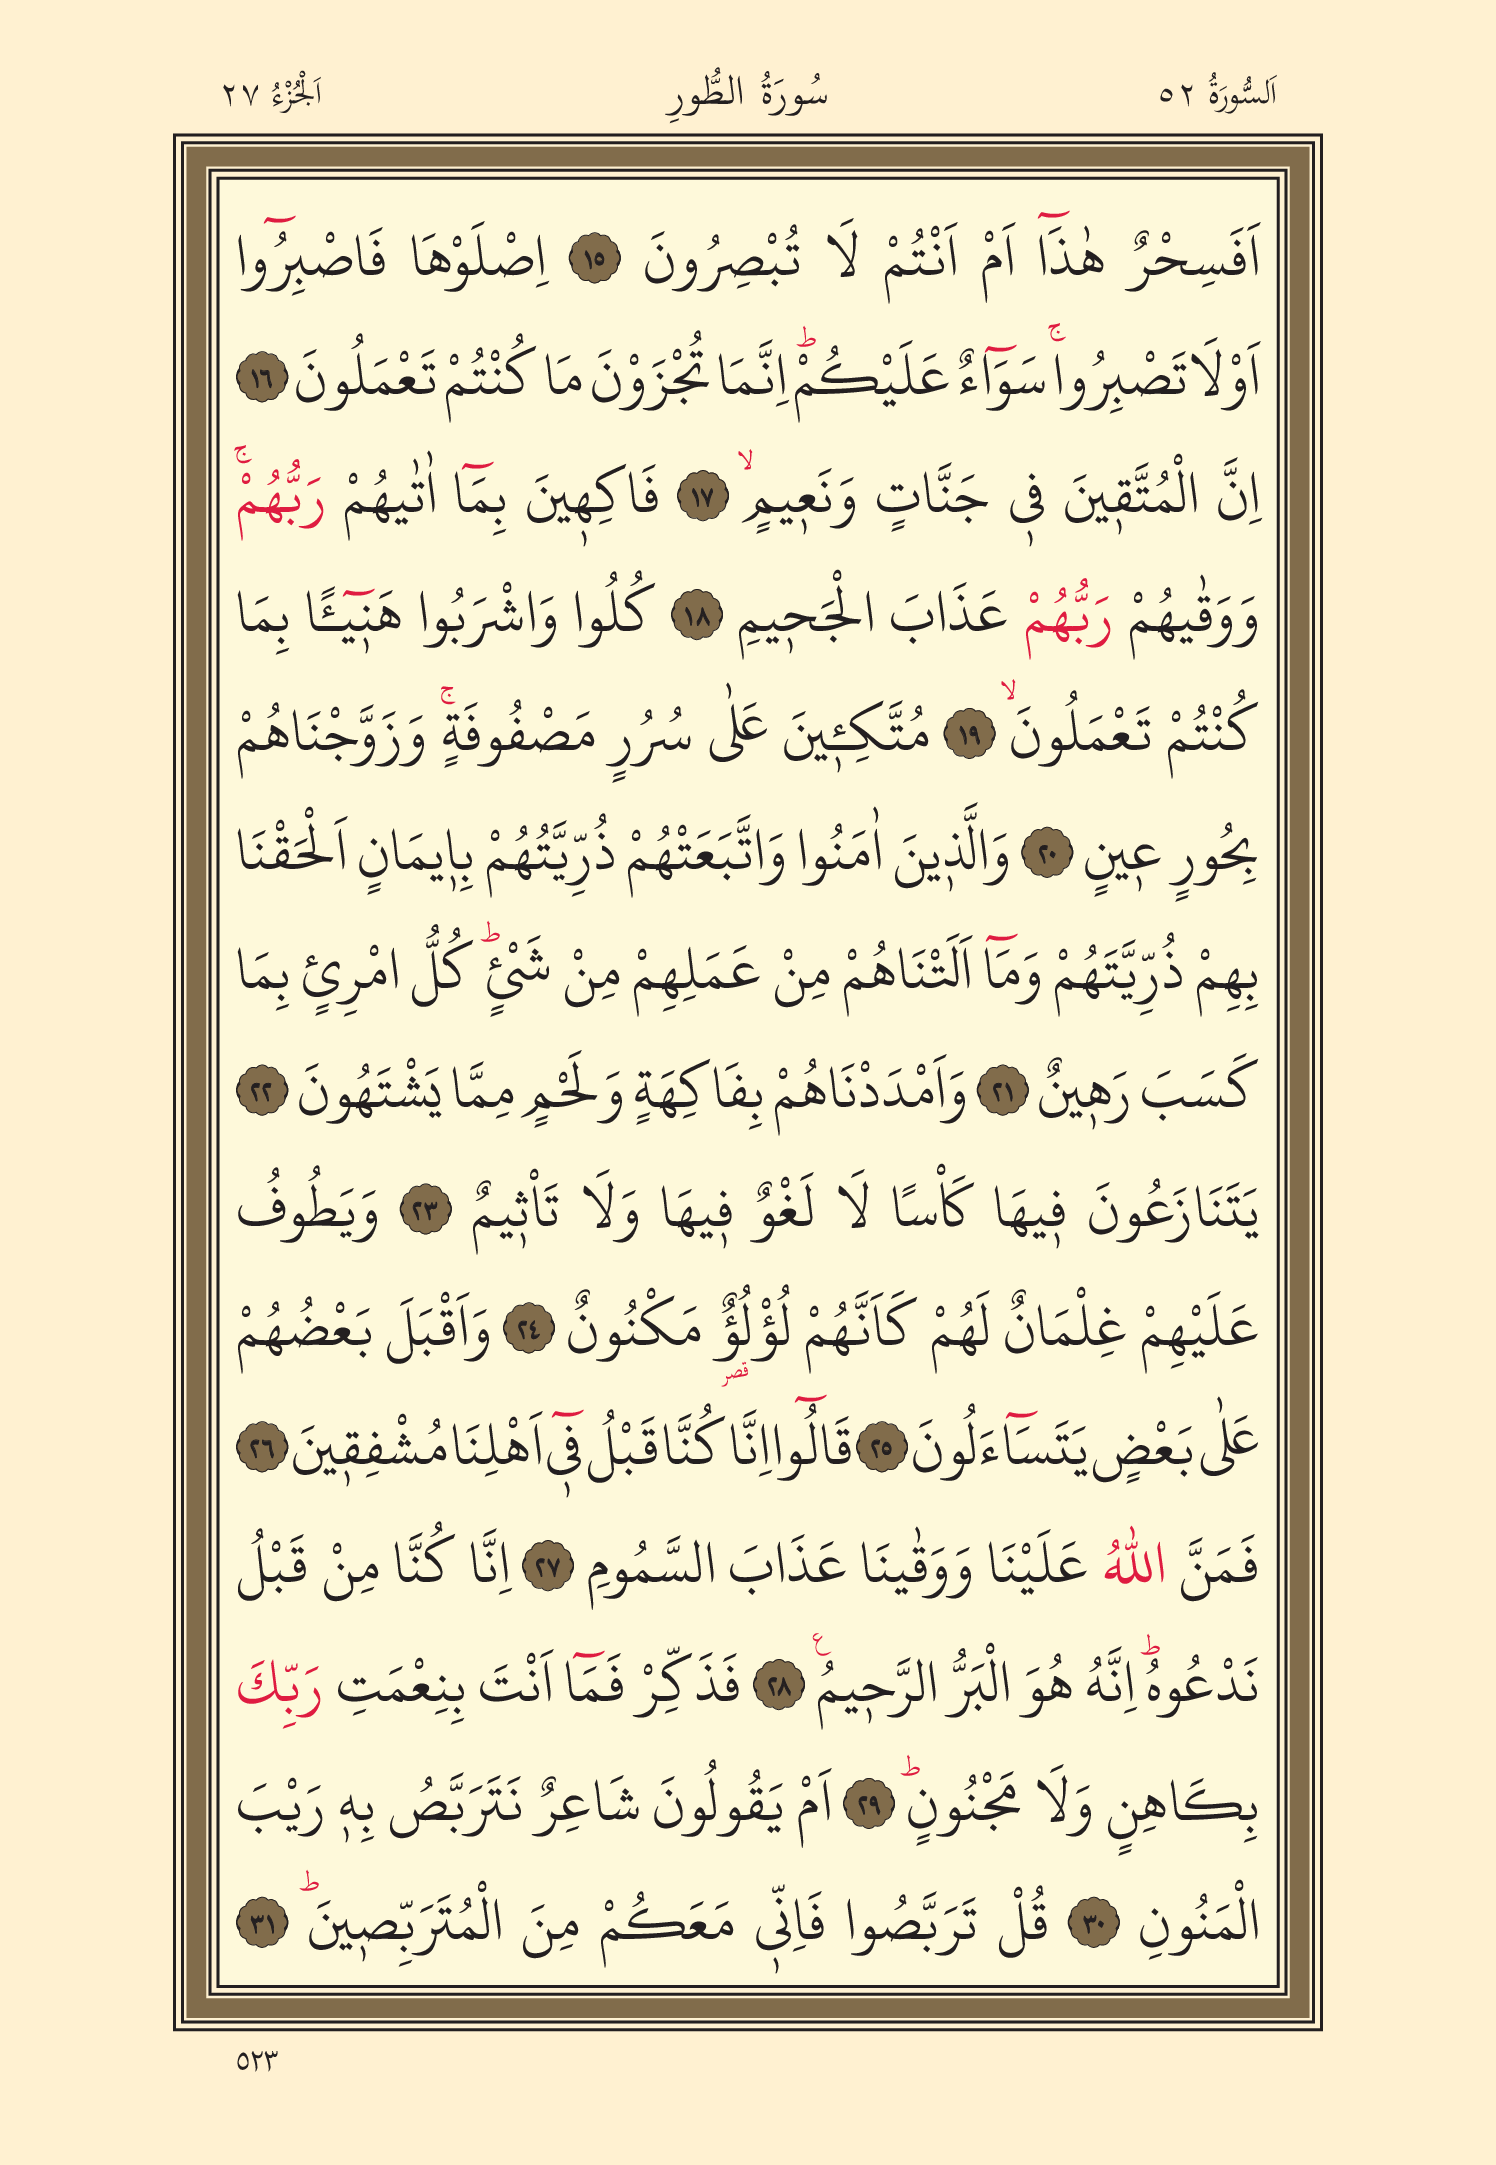 اَلسُّورَةُ ٥٢ سُورَةُ الطُّورِ اَلْجُزْءُ ٢٧
اَفَسِحْرٌ هٰذَٓا اَمْ اَنْتُمْ لَا تُبْصِرُونَ ١٥ اِصْلَوْهَا فَاصْبِرُٓوا
اَوْ لَا تَصْبِرُواۚ سَوَٓاءٌ عَلَيْكُمْۜ اِنَّمَا تُجْزَوْنَ مَا كُنْتُمْ تَعْمَلُونَ ١٦
اِنَّ الْمُتَّق۪ينَ ف۪ي جَنَّاتٍ وَنَع۪يمٍۙ ١٧ فَاكِه۪ينَ بِمَٓا اٰتٰيهُمْ رَبُّهُمْۚ
وَوَقٰيهُمْ رَبُّهُمْ عَذَابَ الْجَح۪يمِ ١٨ كُلُوا وَاشْرَبُوا هَن۪ٓيـًٔا بِمَا
كُنْتُمْ تَعْمَلُونَۙ ١٩ مُتَّكِـ۪ٔينَ عَلٰى سُرُرٍ مَصْفُوفَةٍۚ وَزَوَّجْنَاهُمْ
بِحُورٍ ع۪ينٍ ٢٠ وَالَّذ۪ينَ اٰمَنُوا وَاتَّبَعَتْهُمْ ذُرِّيَّتُهُمْ بِا۪يمَانٍ اَلْحَقْنَا
بِهِمْ ذُرِّيَّتَهُمْ وَمَٓا اَلَتْنَاهُمْ مِنْ عَمَلِهِمْ مِنْ شَيْءٍۜ كُلُّ امْرِئٍ بِمَا
كَسَبَ رَه۪ينٌ ٢١ وَاَمْدَدْنَاهُمْ بِفَاكِهَةٍ وَلَحْمٍ مِمَّا يَشْتَهُونَ ٢٢
يَتَنَازَعُونَ ف۪يهَا كَأْسًا لَا لَغْوٌ ف۪يهَا وَلَا تَأْث۪يمٌ ٢٣ وَيَطُوفُ
عَلَيْهِمْ غِلْمَانٌ لَهُمْ كَاَنَّهُمْ لُؤْلُؤٌ مَكْنُونٌ ٢٤ وَاَقْبَلَ بَعْضُهُمْ
قصر
عَلٰى بَعْضٍ يَتَسَٓاءَلُونَ ٢٥ قَالُٓوا اِنَّا كُنَّا قَبْلُ ف۪ٓي اَهْلِنَا مُشْفِق۪ينَ ٢٦
فَمَنَّ اللّٰهُ عَلَيْنَا وَوَقٰينَا عَذَابَ السَّمُومِ ٢٧ اِنَّا كُنَّا مِنْ قَبْلُ
نَدْعُوهُۜ اِنَّهُ هُوَ الْبَرُّ الرَّح۪يمُ ع ٢٨ فَذَكِّرْ فَمَٓا اَنْتَ بِنِعْمَتِ رَبِّكَ
بِكَاهِنٍ وَلَا مَجْنُونٍۜ ٢٩ اَمْ يَقُولُونَ شَاعِرٌ نَتَرَبَّصُ بِه۪ رَيْبَ
الْمَنُونِ ٣٠ قُلْ تَرَبَّصُوا فَاِنّ۪ي مَعَكُمْ مِنَ الْمُتَرَبِّص۪ينَۜ ٣١
٥٢٣